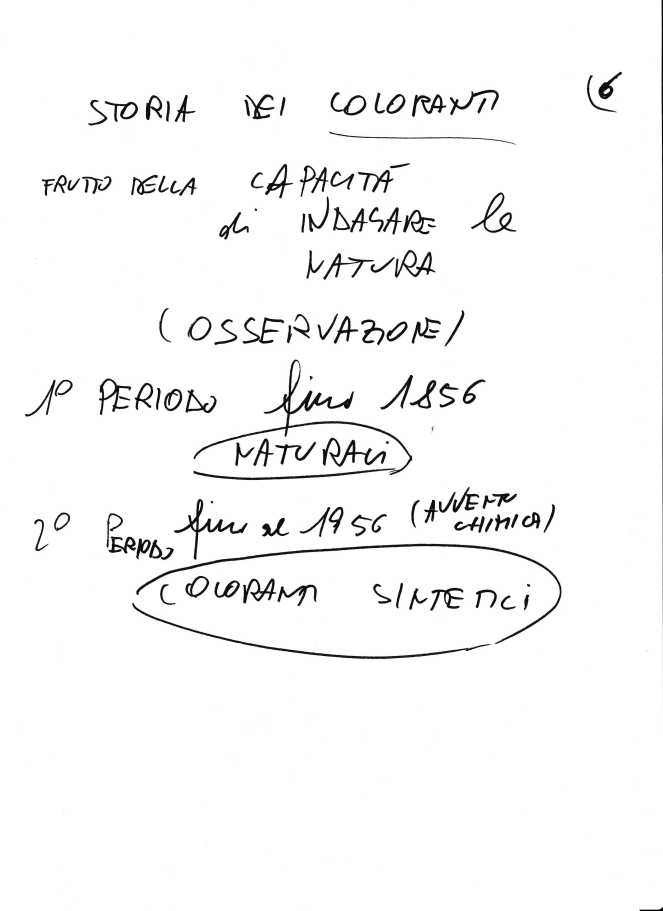 (6
STORIA DEI COLORANTI
FRUTTO DELLA CAPACITÀ
di INDAGARE la
NATURA
(OSSERVAZIONE)
1º PERIODO fino 1856
NATURALi
2º PERIODO fino al 1956 (AVVENTO
CHIMICA)
COLORANTI SINTETICi